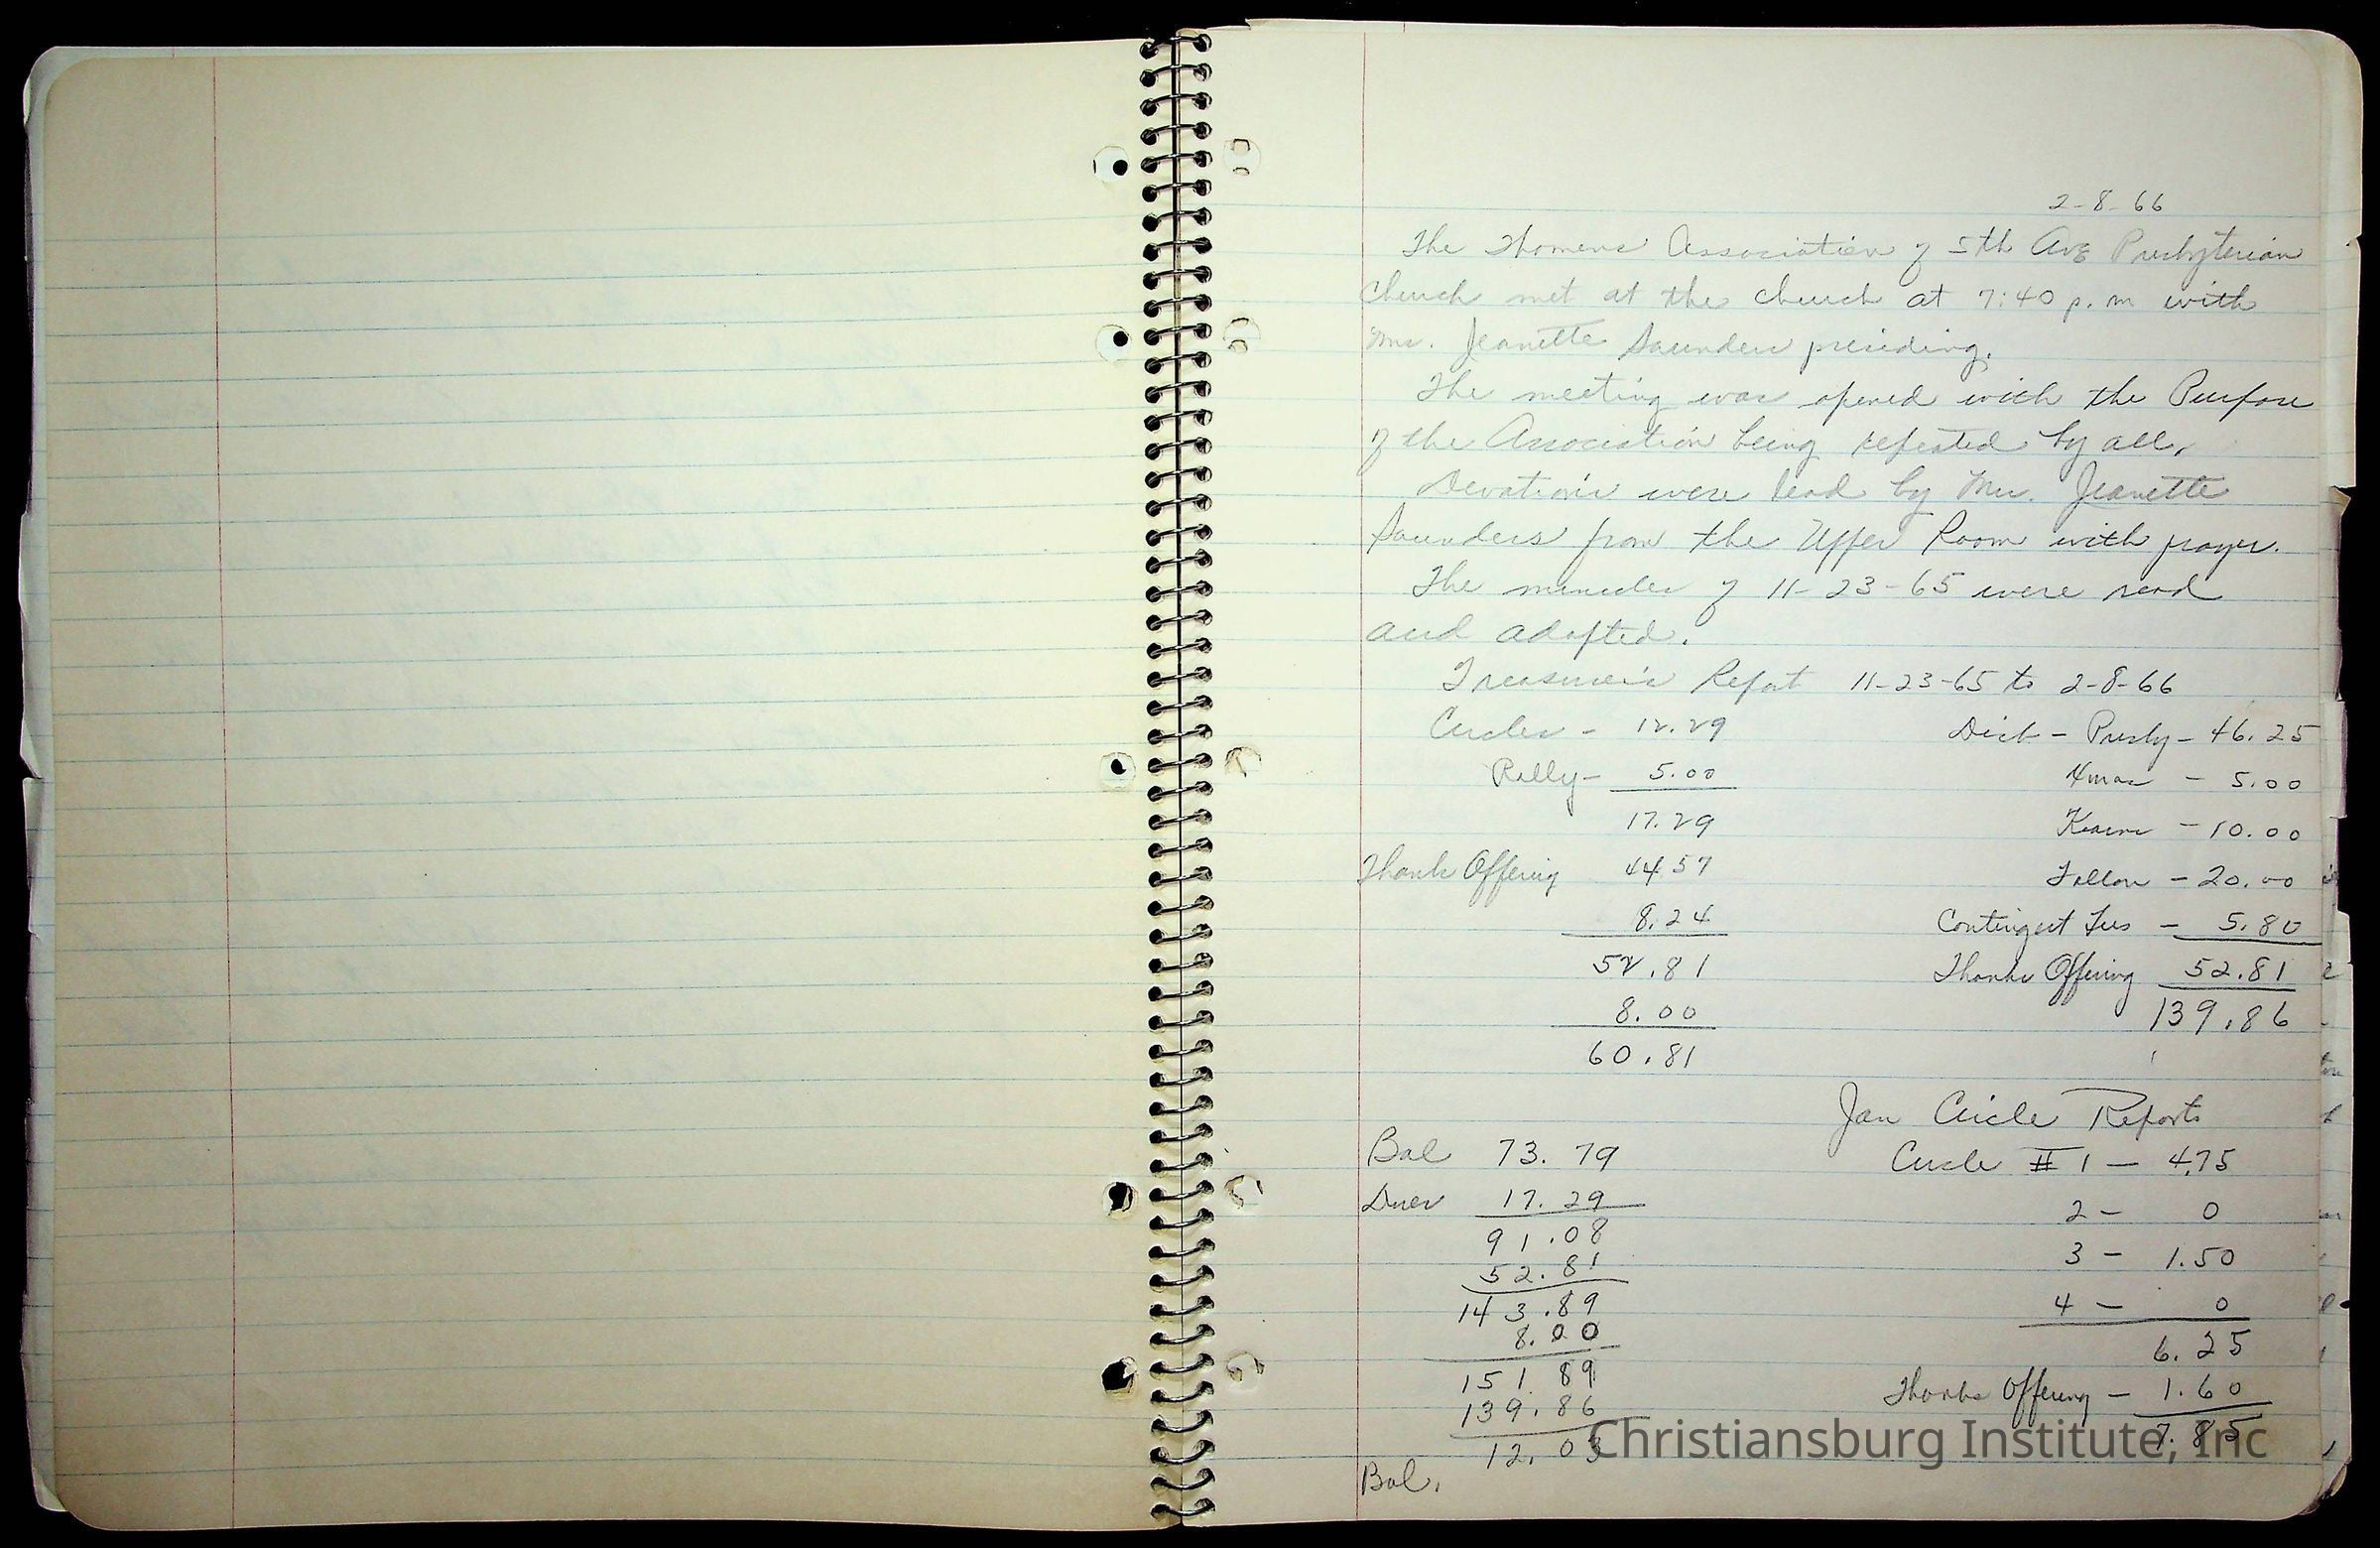 2-8-66
The Womens Association of 5th Ave Presbyterian
Church met at the church at 7:40 p.m with
Mrs. Jeanette Saunders presiding.
The meeting was opened with the Purpose
of the Association being repeated by all.
Devotions were lead by Mrs. Jeanette
Saunders from the Upper Room with prayer.
The minutes of 11-23-65 were read
and adopted.
Treasurer's Report 11-23-65 to 2-8-66
Circles - 12.29
Rally - 5.00
17.29
Thank Offering 44.57
8.24
52.81
8.00
60.81
Disb - Presby - 46.25
Xmas - 5.00
- 10.00
- 20.00
Contingent Fees - 5.80
Thanks Offering 52.81
139.86
Bal 73.79
Dues 17.29
91.08
52.81
143.89
8.00
151.89
139.86
12.03
Bal.
Jan Circle Reports
Circle # 1 - 4.75
2 - 0
3 - 1.50
4 - 0
6.25
Thanks Offering - 1.60
7.85
Christiansburg Institute, Inc